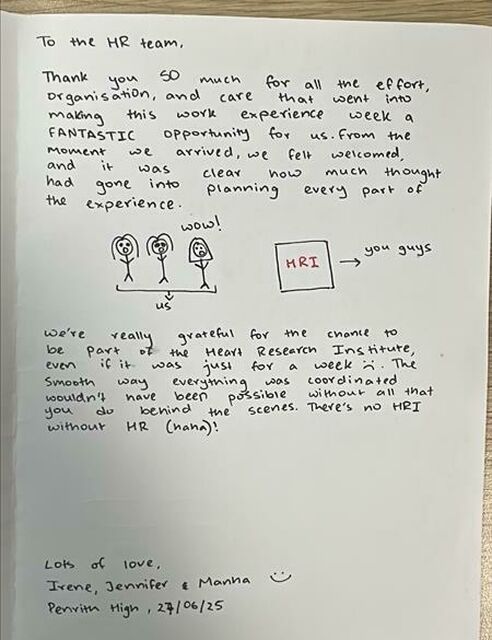 To the HR team,
Thank you SO much for all the effort,
organisation, and care that went into
making this work experience week a
FANTASTIC opportunity for us. From the
moment we arrived, we felt welcomed,
and it was clear how much thought
had gone into planning every part of
the experience.
wow!
HRI → you guys
us
We're really grateful for the chance to
be part of the Heart Research Institute,
even if it was just for a week :(. The
smooth way everything was coordinated
wouldn't have been possible without all that
you do behind the scenes. There's no HRI
without HR (haha)!
Lots of love,
Irene, Jennifer & Manha :)
Penrith High, 27/06/25